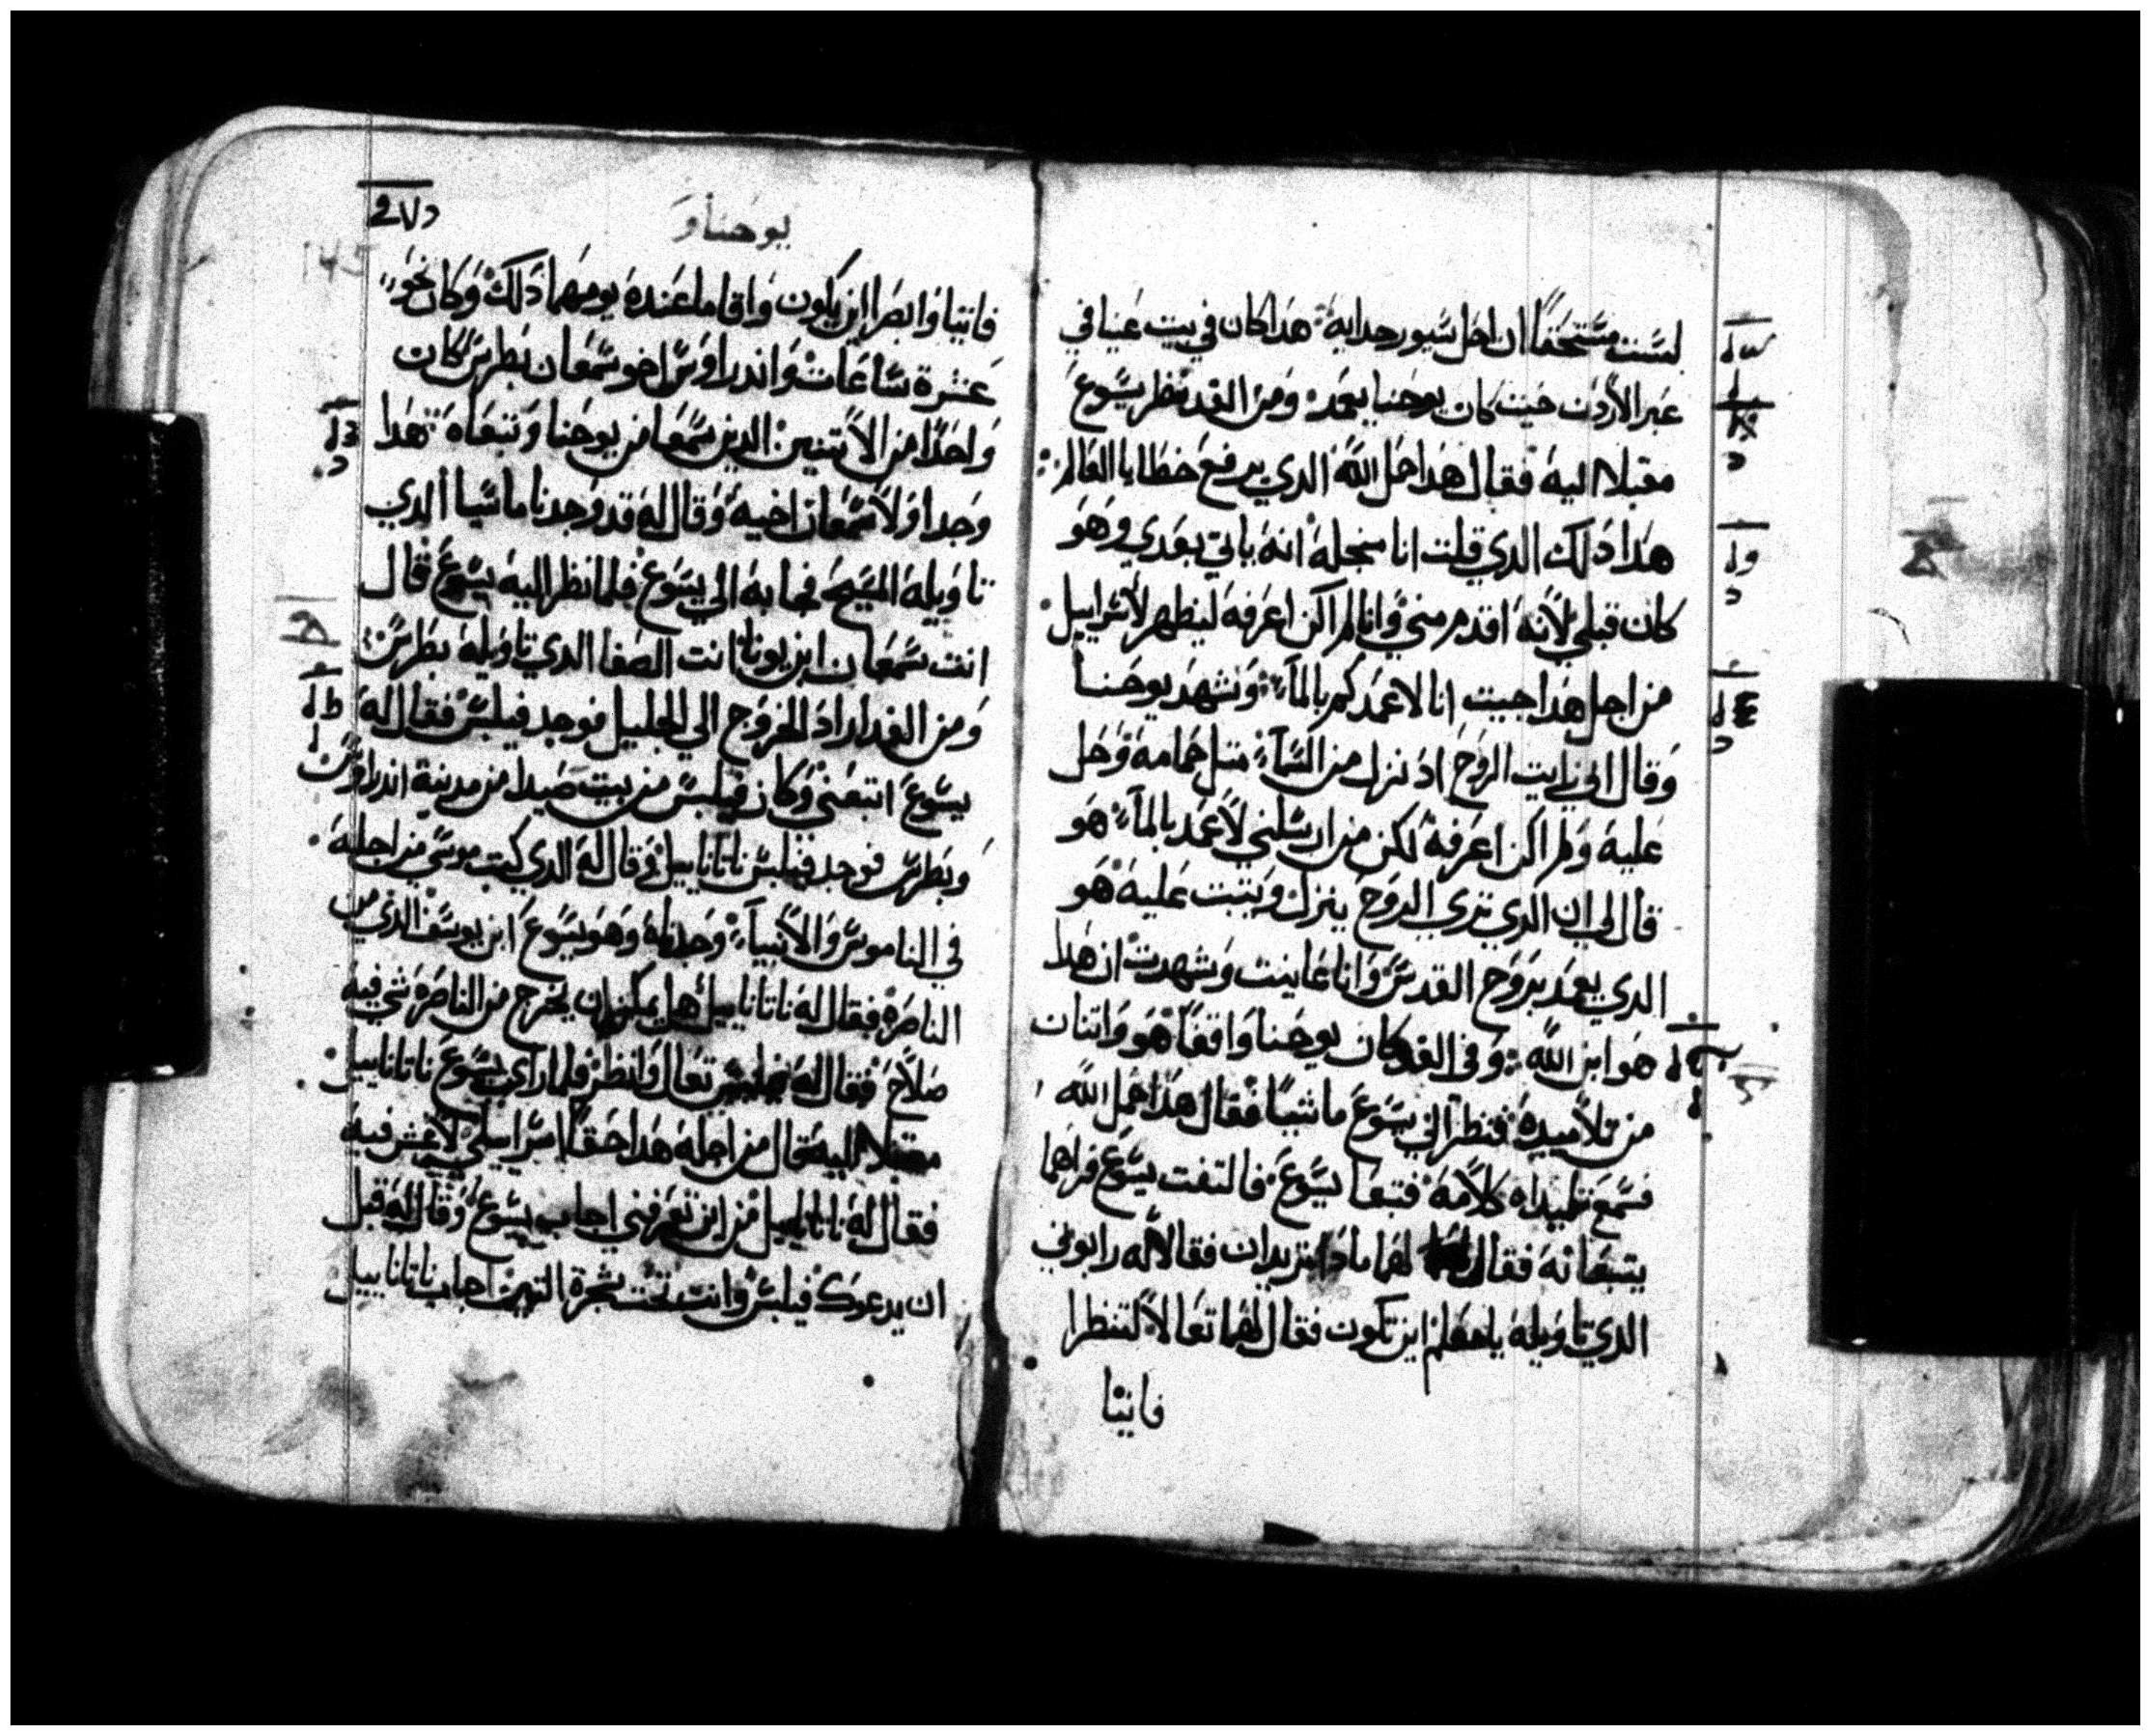 لست مستحقا ان احل سيور حدايه هدا كان في بيت عنيا في
عبر الأردن حيت كان يوحنا يعمد ومن الغد نظر يسوع
مقبلا اليه فقال هدا حمل الله الدي يرفع خطايا العالم
هدا دلك الدي قلت انا منجله انه ياتي بعدي وهو
كان قبلي لأنه اقدم مني وانا لم اكن اعرفه ليظهر لأسراييل
من اجل هدا جيت انا لاعمدكم بالمآء وشهد يوحنا
وقال اني رايت الروح اد نزل من السمآء متل حمامه وحل
عليه ولم اكن اعرفه لكن من ارسلني لأعمد بالمآء هو
قال لي ان الدي تري الروح ينزل ويتبت عليه هو
الدي يعمد بروح القدس وانا عاينت وشهدت ان هدا
هو ابن الله وفي الغد كان يوحنا واقفا هو واتنان
من تلاميده فنظر الي يسوع ماشيا فقال هدا حمل الله
فسمع تلميداه كلامه فتبعا يسوع فالتفت يسوع فراهما
يتبعانه فقال لهما مادا تريدان فقالا له رابوني
الدي تاويله يا معلم اين تكون فقال لهما تعالا لتنظرا
فاتيا
يوحنا و
145
فاتيا وابصرا اين يكون واقاما عنده يومهما دلك وكان نحو
عشرة ساعات واندراوس اخو سمعان بطرس كان
واحدا من الأتنين الدين سمعا من يوحنا وتبعاه هدا
وجد اولا سمعان اخيه وقال له قد وجدنا ماسيا الدي
تاويله المسيح فجا به الي يسوع فلما نظر اليه يسوع قال
انت سمعان ابن يونا انت الصفا الدي تاويله بطرس
ومن الغد اراد الخروج الي الجليل فوجد فيلبس فقال له
يسوع اتبعني وكان فيلبس من بيت صيدا من مدينة اندراوس
وبطرس فوجد فيلبس ناتاناييل وقال له الدي كتب موسي من اجله
في الناموس والأنبيآء وجدناه وهو يسوع ابن يوسف الدي من
الناصرة فقال له ناتاناييل هل يمكن ان يخرج من الناصرة شي فيه
صلاح فقال له فيلبس تعال وانظر فلما راي يسوع ناتاناييل
مقبلا اليه قال من اجله هدا حقا اسراييلي لا غش فيه
فقال له ناتاناييل من اين تعرفني اجاب يسوع وقال له قبل
ان يدعوك فيلبس وانت تحت شجرة التين اجاب ناتاناييل